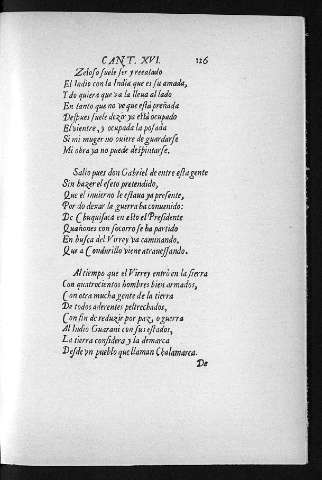 CANT. XVI. 126
Zeloso suele ser y recatado
El Indio con la India que es su amada,
Y do quiera que va la lleua al lado
En tanto que no ve que está preñada
Despues suele dezir ya està ocupado
El vientre, y ocupada la posada
Si mi muger no quiere de guardarse
Mi obra ya no puede despintarse.
Salio pues don Gabriel de entre esta gente
Sin hazer el efeto pretendido,
Que el inuierno le estaua ya presente,
Por do dexar la guerra ha conuenido:
De Chuquisaca en esto el Presidente
Quañones con socorro se ha partido
En busca del Virrey va caminando,
Que a Condorillo viene atrauessando.
Al tiempo que el Virrey entrò en la sierra
Con quatrocientos hombres bien armados,
Con otra mucha gente de la tierra
De todos aderentes peltrechados,
Con fin de reduzir por paz, o guerra
Al Indio Guarani con sus estados,
La tierra considera y la demarca
Desde vn pueblo que llaman Chalamarca.
De